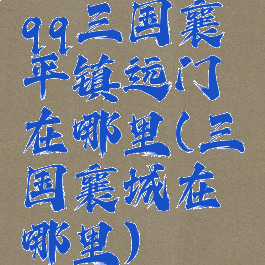 qq三国襄
平镇远门
在哪里(三
国襄城在
哪里)